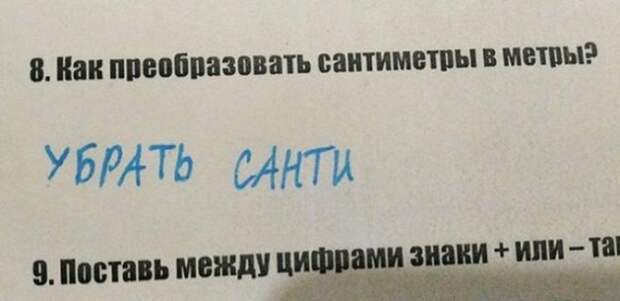 8. Как преобразовать сантиметры в метры?
УБРАТЬ САНТИ
9. Поставь между цифрами знаки + или –